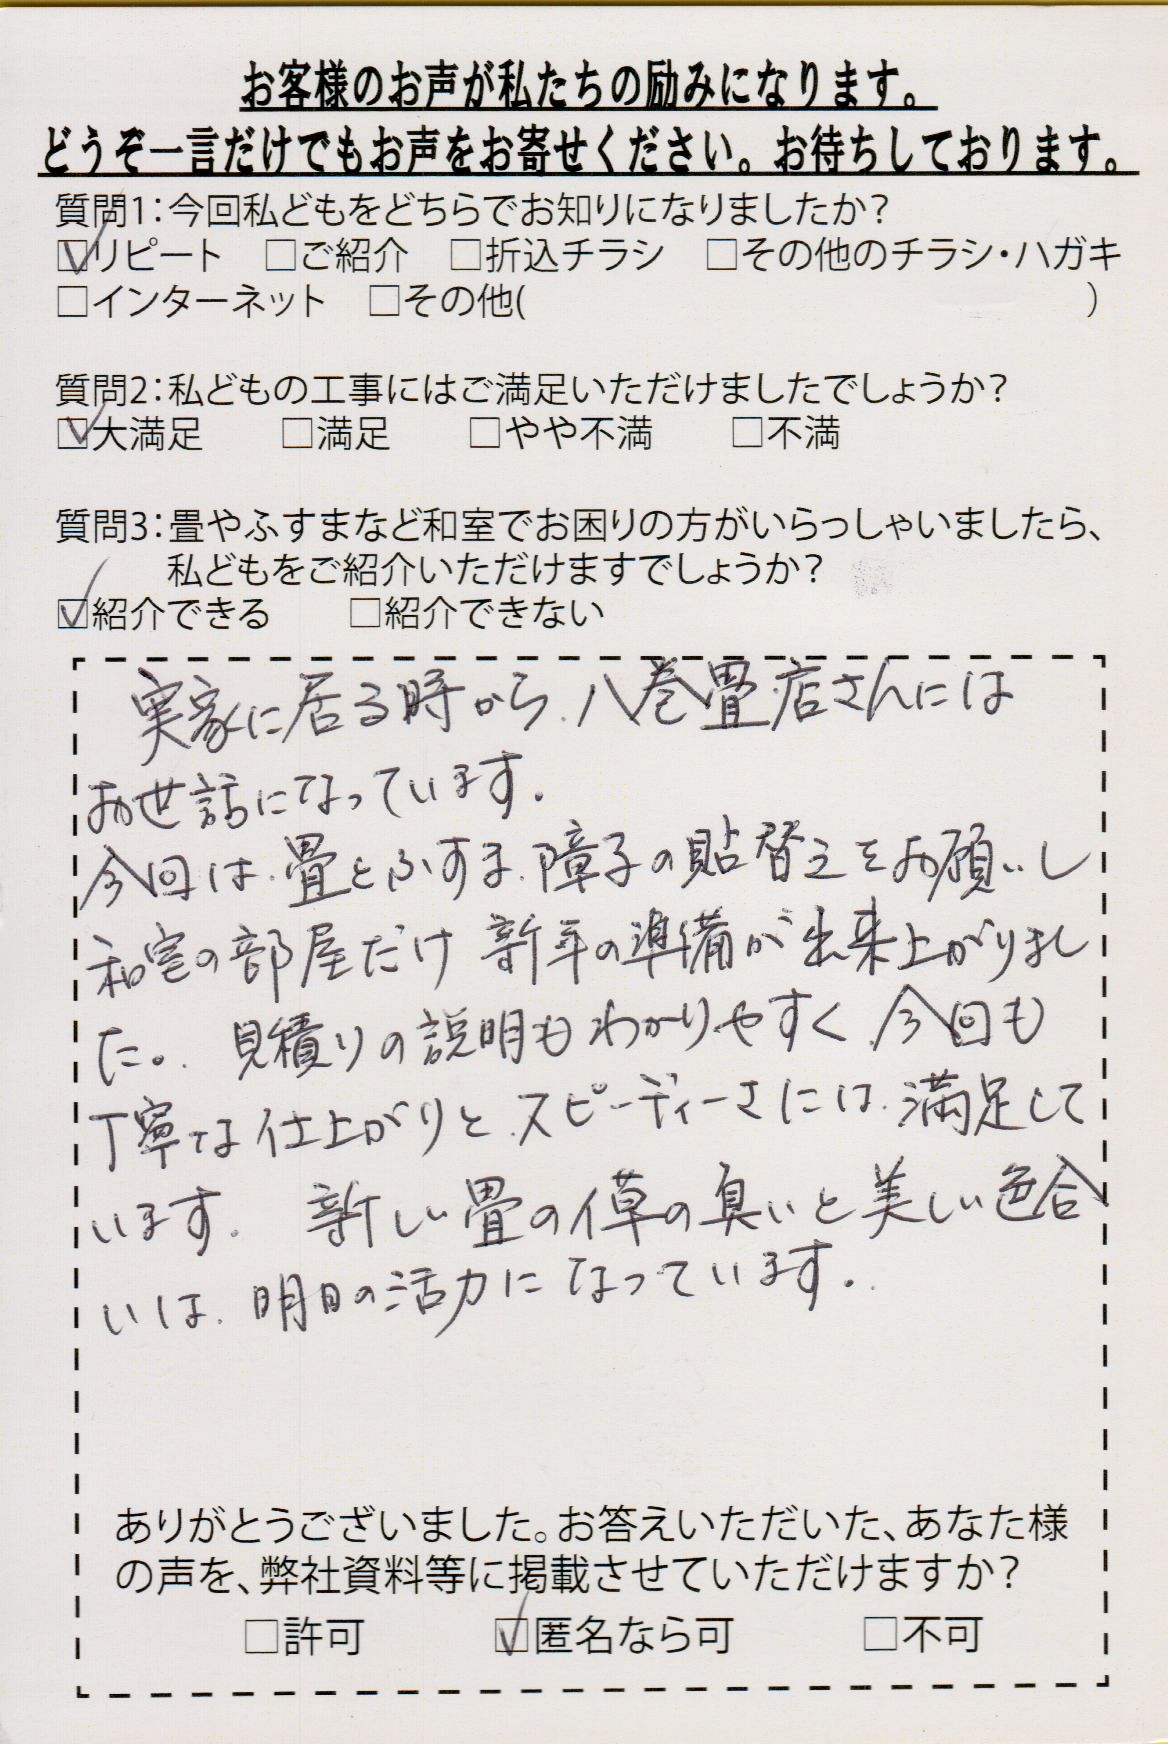 お客様のお声が私たちの励みになります。
どうぞ一言だけでもお声をお寄せください。お待ちしております。
質問1：今回私どもをどちらでお知りになりましたか？
☑リピート □ご紹介 □折込チラシ □その他のチラシ・ハガキ
□インターネット □その他( )
質問2：私どもの工事にはご満足いただけましたでしょうか？
☑大満足 □満足 □やや不満 □不満
質問3：畳やふすまなど和室でお困りの方がいらっしゃいましたら、
私どもをご紹介いただけますでしょうか？
☑紹介できる □紹介できない
実家に居る時から、八巻畳店さんには
お世話になっています。
今回は、畳とふすま、障子の貼替えをお願いし
和室の部屋だけ新年の準備が出来上がりまし
た。見積りの説明もわかりやすく、今回も
丁寧な仕上がりと、スピーディーさには、満足して
います。新しい畳のイ草の臭いと美しい色合
いは、明日の活力になっています。
ありがとうございました。お答えいただいた、あなた様
の声を、弊社資料等に掲載させていただけますか？
□許可 ☑匿名なら可 □不可